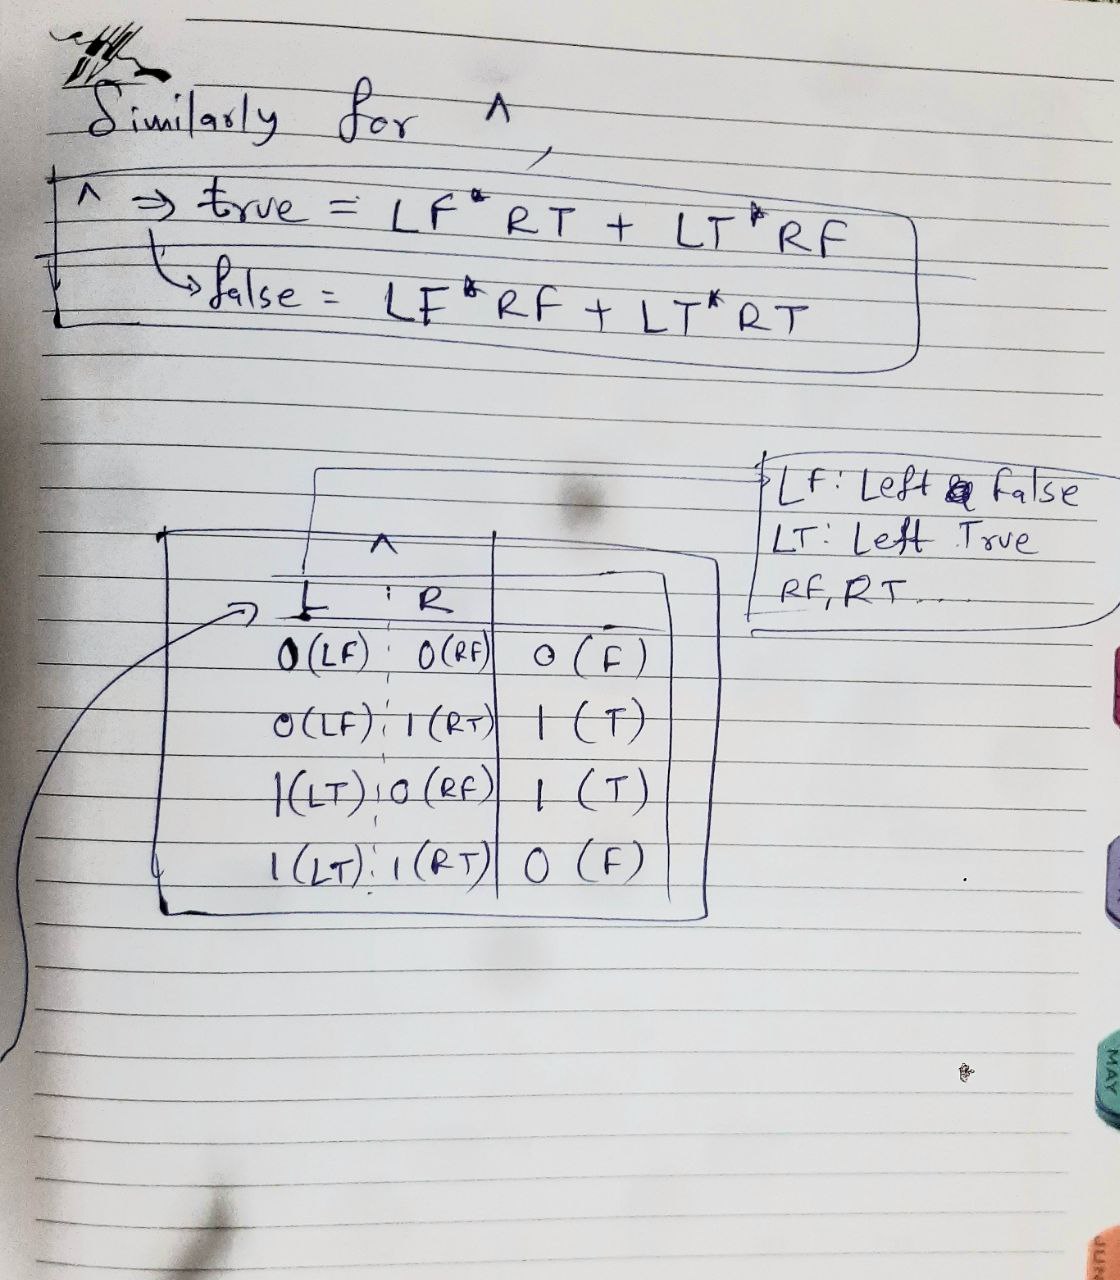 Similarly for ^,
^ ⇒ true = LF * RT + LT * RF
↳ false = LF * RF + LT * RT
LF: Left False
LT: Left True
RF, RT...
^
L R
0(LF) 0(RF) 0 (F)
0(LF) 1(RT) 1 (T)
1(LT) 0(RF) 1 (T)
1(LT) 1(RT) 0 (F)
MAY
JUN